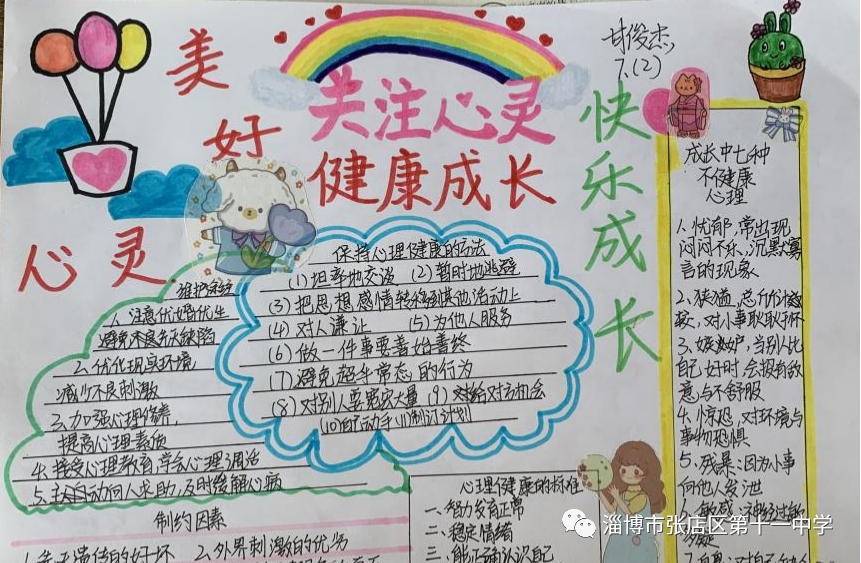 美好
心灵
关注心灵
健康成长
快乐成长
甘俊杰
7.(2)
维护系统
1、注意优婚优生
避免不良先天缺陷
2、优化现实环境
减少不良刺激
3、加强心理修养,
提高心理素质
4、接受心理教育,学会心理调适
5、主动向人求助,及时缓解心病
保持心理健康的方法
(1)坦率地交谈 (2)暂时地逃避
(3)把思想感情转移到其他活动上
(4)对人谦让 (5)为他人服务
(6)做一件事要善始善终
(7)避免超乎常态的行为
(8)对别人要宽宏大量 (9)给对方机会
(10)自己动手 (11)制订计划
制约因素
先天遗传的好坏 2、外界刺激的优劣
心理健康的标准
一、智力发育正常
二、稳定情绪
三、能正确认识自己
成长中七种
不健康
心理
1、忧郁,常出现
闷闷不乐、沉默寡
言的现象
2、狭隘,总斤斤计
较,对小事耿耿于怀
3、嫉妒,当别人比
自己好时会报有敌
意与不舒服
4、惊恐,对环境与
事物恐惧
5、残暴:因为小事
向他人发泄
敏感:神经过敏
7、自卑:对自己
淄博市张店区第十一中学